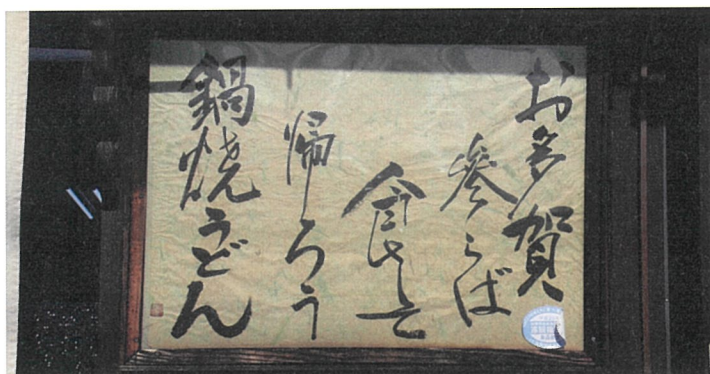 お多賀
参らば
食して
帰ろう
鍋焼うどん